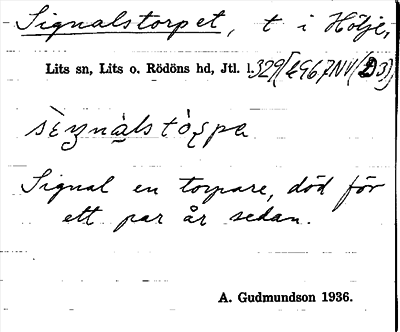 Signalstorpet, t i Hölje,
Lits sn, Lits o. Rödöns hd, Jtl. l.329 [£G67NV(D3)]
Signal en torpare, död för
ett par år sedan.
A. Gudmundson 1936.